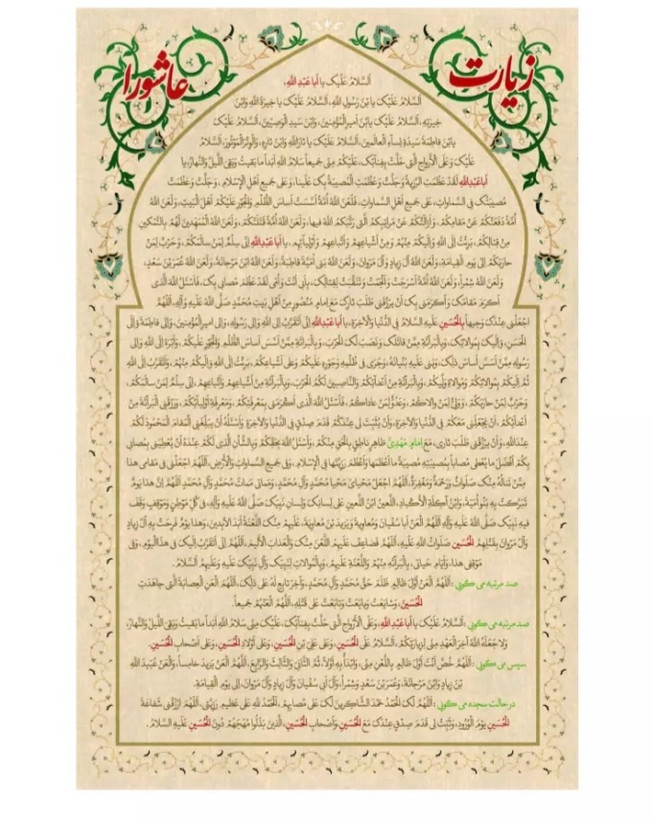 زیارت عاشورا
اَلسَّلامُ عَلَیْکَ یا اَباعَبْدِاللهِ،
اَلسَّلامُ عَلَیْکَ یَابْنَ رَسُولِ اللهِ، اَلسَّلامُ عَلَیْکَ یا خِیَرَةَ اللهِ وَابْنَ
خِیَرَتِهِ، اَلسَّلامُ عَلَیْکَ یَابْنَ اَمیرِالْمُؤْمِنینَ، وَابْنَ سَیِّدِ الْوَصِیّینَ، اَلسَّلامُ عَلَیْکَ
یَابْنَ فاطِمَةَ سَیِّدَةِ نِسآءِ الْعالَمینَ، اَلسَّلامُ عَلَیْکَ یا ثارَاللهِ وَابْنَ ثارِهِ، وَالْوِتْرَ الْمَوْتُورَ، اَلسَّلامُ
عَلَیْکَ وَ عَلَی الْاَرْواحِ الَّتی حَلَّتْ بِفِنآئِکَ، عَلَیْکُمْ مِنّی جَمیعاً سَلامُ اللهِ اَبَداً ما بَقیتُ وَبَقِیَ اللَّیْلُ وَالنَّهارُ، یا
اَباعَبْدِاللهِ لَقَدْ عَظُمَتِ الرَّزِیَّةُ وَجَلَّتْ وَعَظُمَتِ الْمُصیبَةُ بِکَ عَلَیْنا، وَ عَلی جَمیعِ اَهْلِ الْاِسْلامِ، وَ جَلَّتْ وَ عَظُمَتْ
مُصیبَتُکَ فِی السَّماواتِ، عَلی جَمیعِ اَهْلِ السَّماواتِ، فَلَعَنَ اللهُ اُمَّةً اَسَّسَتْ اَساسَ الظُّلْمِ وَالْجَوْرِ عَلَیْکُمْ اَهْلَ الْبَیْتِ، وَلَعَنَ اللهُ
اُمَّةً دَفَعَتْکُمْ عَنْ مَقامِکُمْ، وَاَزالَتْکُمْ عَنْ مَراتِبِکُمُ الَّتی رَتَّبَکُمُ اللهُ فیها، وَلَعَنَ اللهُ اُمَّةً قَتَلَتْکُمْ، وَلَعَنَ اللهُ الْمُمَهِّدینَ لَهُمْ بِالتَّمْکینِ
مِنْ قِتالِکُمْ، بَرِئْتُ اِلَی اللهِ وَاِلَیْکُمْ مِنْهُمْ وَ مِنْ اَشْیاعِهِمْ وَاَتْباعِهِمْ وَ اَوْلِیآئِهِمْ، یا اَباعَبْدِاللهِ اِنّی سِلْمٌ لِمَنْ سالَمَکُمْ، وَ حَرْبٌ لِمَنْ
حارَبَکُمْ اِلی یَوْمِ الْقِیامَةِ، وَلَعَنَ اللهُ آلَ زِیادٍ وَ آلَ مَرْوانَ، وَلَعَنَ اللهُ بَنی اُمَیَّةَ قاطِبَةً، وَلَعَنَ اللهُ ابْنَ مَرْجانَةَ، وَلَعَنَ اللهُ عُمَرَ بْنَ سَعْدٍ،
وَلَعَنَ اللهُ شِمْراً، وَلَعَنَ اللهُ اُمَّةً اَسْرَجَتْ وَاَلْجَمَتْ وَتَنَقَّبَتْ لِقِتالِکَ، بِاَبی اَنْتَ وَاُمّی لَقَدْ عَظُمَ مُصابی بِکَ، فَاَسْئَلُ اللهَ الَّذی
اَکْرَمَ مَقامَکَ وَ اَکْرَمَنی بِکَ اَنْ یَرْزُقَنی طَلَبَ ثارِکَ مَعَ اِمامٍ مَنْصُورٍ مِنْ اَهْلِ بَیْتِ مُحَمَّدٍ صَلَّی اللهُ عَلَیْهِ وَ آلِهِ، اَللّهُمَّ
اجْعَلْنی عِنْدَکَ وَجیهاً بِالْحُسَیْنِ عَلَیْهِ السَّلامُ فِی الدُّنْیا وَالْاخِرَةِ، یا اَباعَبْدِاللهِ اِنّی اَتَقَرَّبُ اِلَی اللهِ وَ اِلی رَسُولِهِ، وَ اِلی امیرِالْمُؤْمِنینَ، وَ اِلی فاطِمَةَ وَ اِلَی
الْحَسَنِ، وَ اِلَیْکَ بِمُوالاتِکَ، وَ بِالْبَرآئَةِ مِمَّنْ قاتَلَکَ، وَ نَصَبَ لَکَ الْحَرْبَ، وَ بِالْبَرآئَةِ مِمَّنْ اَسَّسَ اَساسَ الظُّلْمِ وَالْجَوْرِ عَلَیْکُمْ، وَ اَبْرَءُ اِلَی اللهِ وَ اِلی
رَسُولِهِ مِمَّنْ اَسَّسَ اَساسَ ذلِکَ، وَبَنی عَلَیْهِ بُنْیانَهُ، وَ جَری فی ظُلْمِهِ وَجَوْرِهِ عَلَیْکُمْ وَ عَلی اَشْیاعِکُمْ، بَرِئْتُ اِلَی اللهِ وَ اِلَیْکُمْ مِنْهُمْ، وَ اَتَقَرَّبُ اِلَی اللهِ
ثُمَّ اِلَیْکُمْ بِمُوالاتِکُمْ وَ مُوالاةِ وَلِیِّکُمْ، وَ بِالْبَرآئَةِ مِنْ اَعْدآئِکُمْ وَالنّاصِبینَ لَکُمُ الْحَرْبَ، وَ بِالْبَرآئَةِ مِنْ اَشْیاعِهِمْ وَ اَتْباعِهِمْ، اِنّی سِلْمٌ لِمَنْ سالَمَکُمْ،
وَ حَرْبٌ لِمَنْ حارَبَکُمْ، وَ وَلِیٌّ لِمَنْ والاکُمْ، وَ عَدُوٌّ لِمَنْ عاداکُمْ، فَاَسْئَلُ اللهَ الَّذی اَکْرَمَنی بِمَعْرِفَتِکُمْ، وَ مَعْرِفَةِ اَوْلِیآئِکُمْ، وَ رَزَقَنِی الْبَرآئَةَ مِنْ
اَعْدآئِکُمْ، اَنْ یَجْعَلَنی مَعَکُمْ فِی الدُّنْیا وَالْاخِرَةِ، وَ اَنْ یُثَبِّتَ لی عِنْدَکُمْ قَدَمَ صِدْقٍ فِی الدُّنْیا وَالْاخِرَةِ، وَ اَسْئَلُهُ اَنْ یُبَلِّغَنِی الْمَقامَ الْمَحْمُودَ لَکُمْ
عِنْدَ اللهِ، وَ اَنْ یَرْزُقَنی طَلَبَ ثاری، مَعَ اِمامٍ مَهْدِیٍّ ظاهِرٍ ناطِقٍ بِالْحَقِّ مِنْکُمْ، وَ اَسْئَلُ اللهَ بِحَقِّکُمْ وَ بِالشَّاْنِ الَّذی لَکُمْ عِنْدَهُ اَنْ یُعْطِیَنی بِمُصابی
بِکُمْ اَفْضَلَ ما یُعْطی مُصاباً بِمُصیبَتِهِ، مُصیبَةً ما اَعْظَمَها وَ اَعْظَمَ رَزِیَّتَها فِی الْاِسْلامِ، وَ فی جَمیعِ السَّماواتِ وَ الْاَرْضِ، اَللّهُمَّ اجْعَلْنی فی مَقامی هذا
مِمَّنْ تَنالُهُ مِنْکَ صَلَواتٌ وَ رَحْمَةٌ وَ مَغْفِرَةٌ، اَللّهُمَّ اجْعَلْ مَحْیایَ مَحْیا مُحَمَّدٍ وَ آلِ مُحَمَّدٍ، وَ مَماتی مَماتَ مُحَمَّدٍ وَ آلِ مُحَمَّدٍ، اَللّهُمَّ اِنَّ هذا یَوْمٌ
تَبَرَّکَتْ بِهِ بَنُو اُمَیَّةَ، وَابْنُ آکِلَةِ الْاَکْبادِ، اَللَّعینُ ابْنُ اللَّعینِ عَلی لِسانِکَ وَ لِسانِ نَبِیِّکَ صَلَّی اللهُ عَلَیْهِ وَ آلِهِ، فی کُلِّ مَوْطِنٍ وَ مَوْقِفٍ وَقَفَ
فیهِ نَبِیُّکَ صَلَّی اللهُ عَلَیْهِ وَ آلِهِ، اَللّهُمَّ الْعَنْ اَباسُفْیانَ وَ مُعاوِیَةَ وَ یَزیدَ بْنَ مُعاوِیَةَ، عَلَیْهِمْ مِنْکَ اللَّعْنَةُ اَبَدَ الْابِدینَ، وَ هذا یَوْمٌ فَرِحَتْ بِهِ آلُ زِیادٍ
وَ آلُ مَرْوانَ بِقَتْلِهِمُ الْحُسَیْنَ صَلَواتُ اللهِ عَلَیْهِ، اَللّهُمَّ فَضاعِفْ عَلَیْهِمُ اللَّعْنَ مِنْکَ وَالْعَذابَ الْاَلیمَ، اَللّهُمَّ اِنّی اَتَقَرَّبُ اِلَیْکَ فی هذَا الْیَوْمِ، وَ فی
مَوْقِفی هذا، وَ اَیّامِ حَیاتی، بِالْبَرآئَةِ مِنْهُمْ وَاللَّعْنَةِ عَلَیْهِمْ، وَ بِالْمُوالاتِ لِنَبِیِّکَ وَ آلِ نَبِیِّکَ عَلَیْهِ وَ عَلَیْهِمُ السَّلامُ.
صد مرتبه می گویی: اَللّهُمَّ الْعَنْ اَوَّلَ ظالِمٍ ظَلَمَ حَقَّ مُحَمَّدٍ وَ آلِ مُحَمَّدٍ، وَ آخِرَ تابِعٍ لَهُ عَلی ذلِکَ، اَللّهُمَّ الْعَنِ الْعِصابَةَ الَّتی جاهَدَتِ
الْحُسَیْنَ، وَ شایَعَتْ وَ بایَعَتْ وَ تابَعَتْ عَلی قَتْلِهِ، اَللّهُمَّ الْعَنْهُمْ جَمیعاً.
صد مرتبه می گویی: اَلسَّلامُ عَلَیْکَ یا اَباعَبْدِاللهِ، وَ عَلَی الْاَرْواحِ الَّتی حَلَّتْ بِفِنآئِکَ، عَلَیْکَ مِنّی سَلامُ اللهِ اَبَداً ما بَقیتُ وَ بَقِیَ اللَّیْلُ وَالنَّهارُ،
وَ لا جَعَلَهُ اللهُ آخِرَ الْعَهْدِ مِنّی لِزِیارَتِکُمْ، اَلسَّلامُ عَلَی الْحُسَیْنِ، وَ عَلی عَلِیِّ بْنِ الْحُسَیْنِ، وَ عَلی اَوْلادِ الْحُسَیْنِ، وَ عَلی اَصْحابِ الْحُسَیْنِ.
سپس می گویی: اَللّهُمَّ خُصَّ اَنْتَ اَوَّلَ ظالِمٍ بِاللَّعْنِ مِنّی، وَ ابْدَأْ بِهِ اَوَّلاً، ثُمَّ الثّانِیَ وَالثّالِثَ وَ الرّابِعَ، اَللّهُمَّ الْعَنْ یَزیدَ خامِساً، وَالْعَنْ عُبَیْدَ اللهِ
بْنَ زِیادٍ وَابْنَ مَرْجانَةَ، وَ عُمَرَ بْنَ سَعْدٍ وَ شِمْراً، وَ آلَ اَبی سُفْیانَ وَ آلَ زِیادٍ وَ آلَ مَرْوانَ، اِلی یَوْمِ الْقِیامَةِ.
در حالت سجده می گویی: اَللّهُمَّ لَکَ الْحَمْدُ حَمْدَ الشّاکِرینَ لَکَ عَلی مُصابِهِمْ، اَلْحَمْدُ لِلّهِ عَلی عَظیمِ رَزِیَّتی، اَللّهُمَّ ارْزُقْنی شَفاعَةَ
الْحُسَیْنِ یَوْمَ الْوُرُودِ، وَ ثَبِّتْ لی قَدَمَ صِدْقٍ عِنْدَکَ مَعَ الْحُسَیْنِ وَ اَصْحابِ الْحُسَیْنِ، اَلَّذینَ بَذَلُوا مُهَجَهُمْ دُونَ الْحُسَیْنِ عَلَیْهِ السَّلامُ.